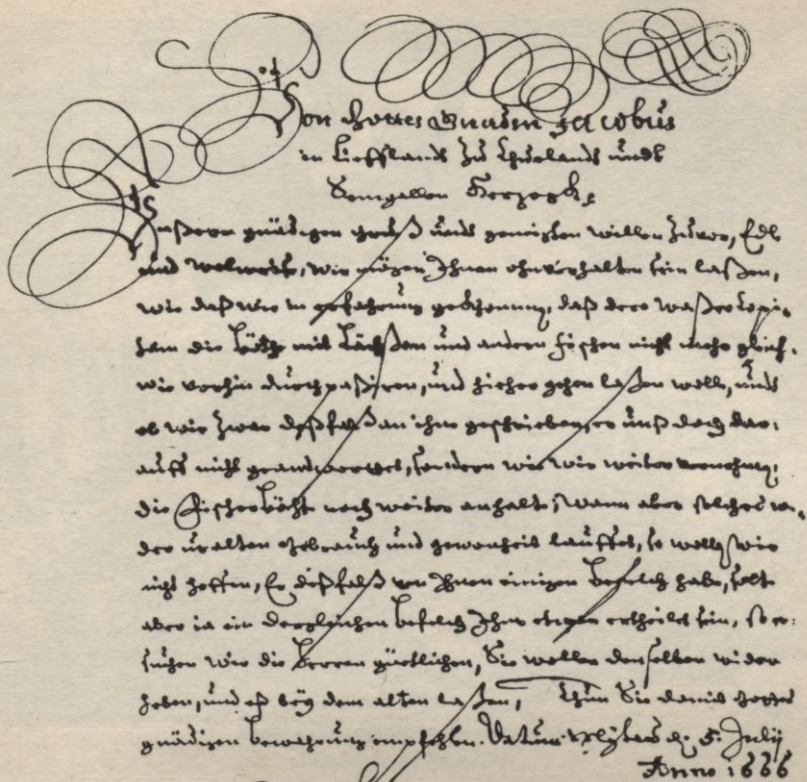 Von Gottes Gnaden Jacobus
in Liefflandt zu Churlandt undt
Semgallen Hertzogk
Unßern gnädigen gruß undt geneigten willen zuvor, Edle
und wir mögen Ihnen ohnverhalten sein laßen,
wie daß wir in erfahrung daß
die mit und andern fischen nicht mehr gleich
wie vorhin durchpaßiren, und hieher gehen laßen wolle, undt
ob wir zwar deßfalß an ihm geschrieben, er unß doch dar:
auff nicht geandtwortet, sondern wie wir weiter
die Fischer noch weiter anhalte, Wann aber solches wi:
der uralten gebrauch und gewonheit lauffet, so wir
nicht hoffen, Er dißfalß von Ihnen einigen befelch habe, solte
aber ja ein dergleichen befelch Ihm ertheilet sein, so er:
suchen wir die Herren güetlichen, Sie wollen denselben wider
heben, und eß bey dem alten laßen, Thun Sie damit Gottes
gnädigen bewahrung empfehlen. Datum d. 5. July
Anno 1666